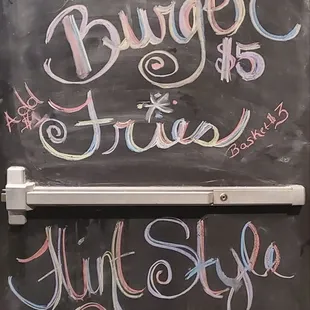 Burger $5
Add $1
Fries
Basket $3
Flint Style